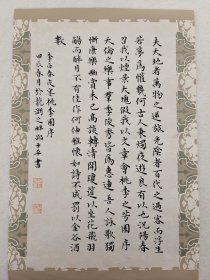 夫天地者萬物之逆旅光陰者百代之過客而浮生
若夢為懽幾何古人秉燭夜遊良有以也況陽春
召我以煙景大塊假我以文章會桃李之芳園序
天倫之樂事羣季俊秀皆為惠連吾人詠歌獨
慚康樂幽賞未已高談轉清開瓊筵以坐花飛羽
觴而醉月不有佳作何伸雅懷如詩不成罰以金谷酒
數
李白春夜宴桃李園序
甲辰春月於龍湖之畔 書